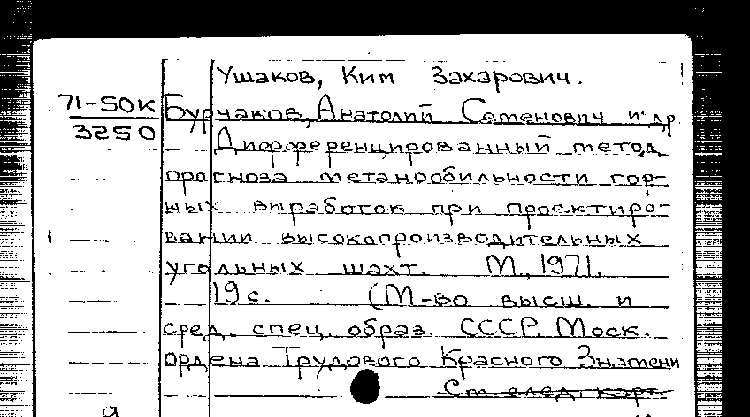 Ушаков, Ким Захарович.
71-50к Бурчаков, Анатолий Семенович и др.
3250
Дифференцированный метод
прогноза метанообильности гор-
ных выработок при проектиро-
вании высокопроизводительных
угольных шахт. М., 1971.
19 с. (М-во высш. и
сред. спец. образ. СССР. Моск.
ордена Трудового Красного Знамени
См. след. карт.